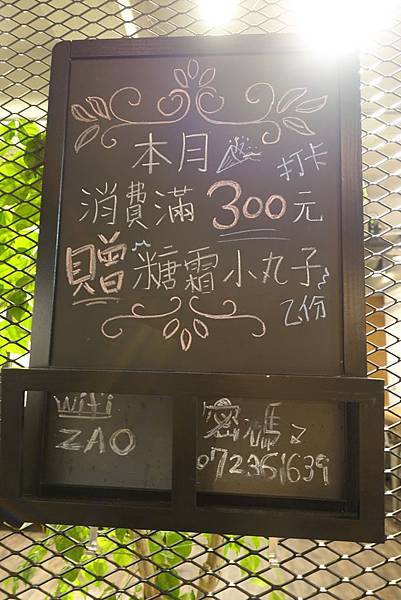 本月
打卡
消費滿300元
贈糖霜小丸子
乙份
wifi
ZAO
密碼
072351639